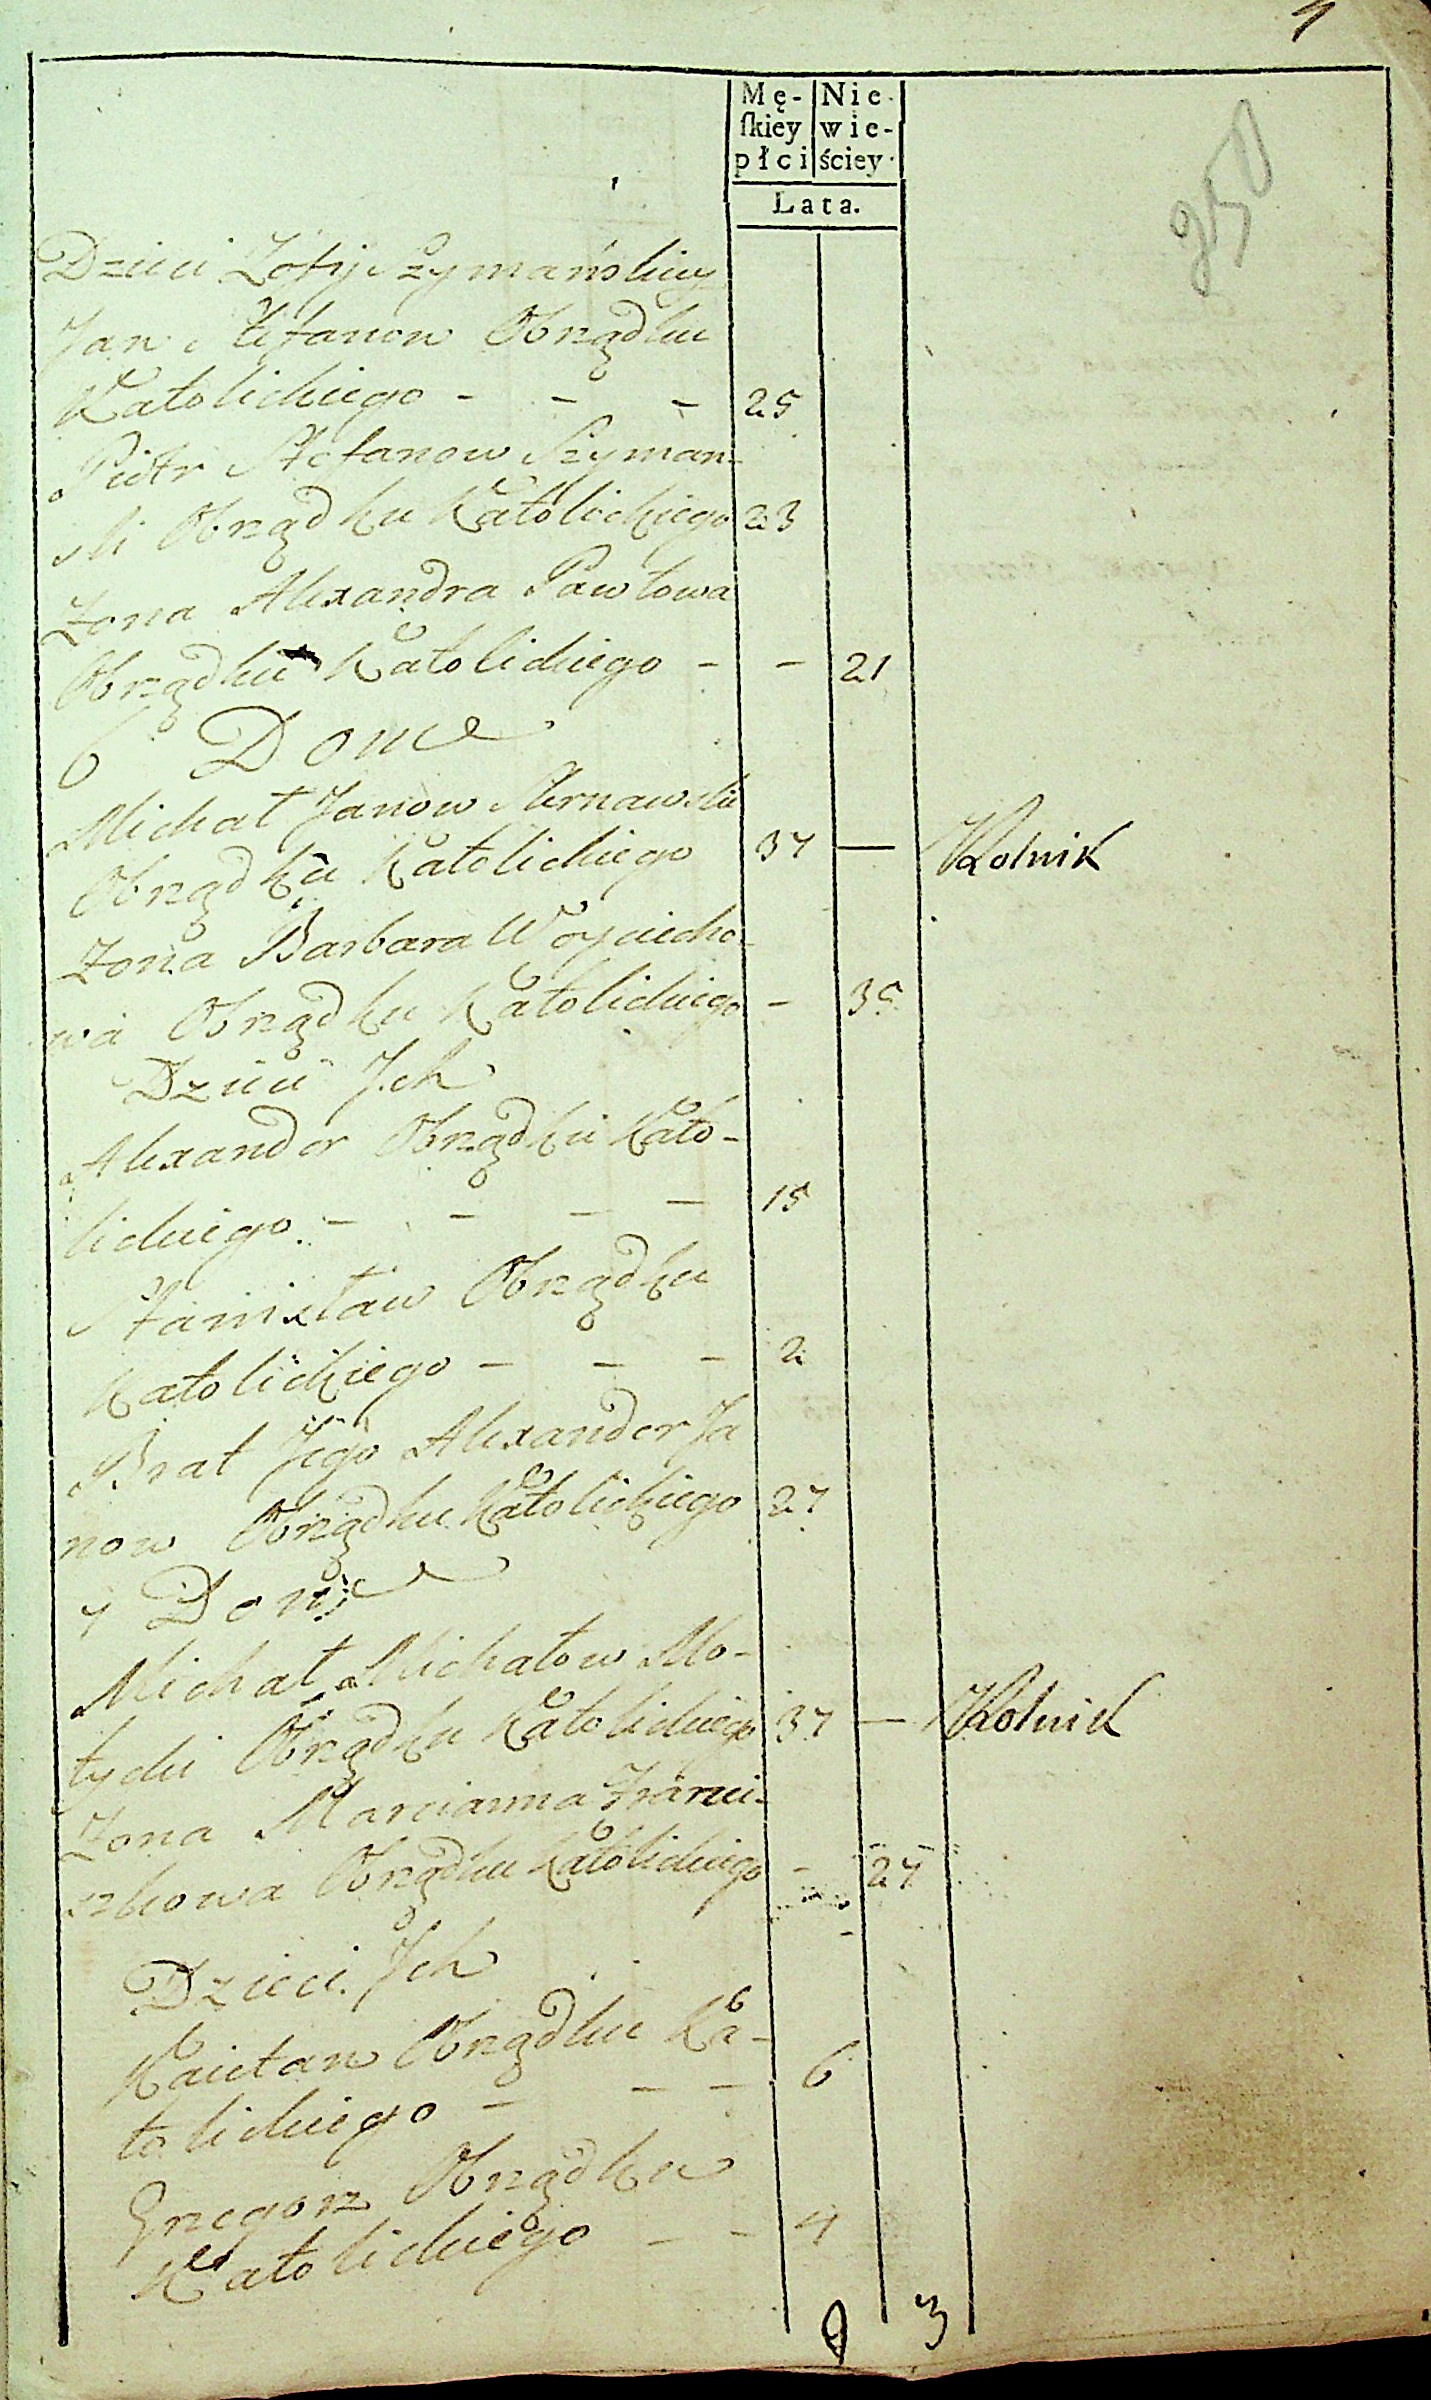 4
Mę- Nie
skiey wie-
płci ściey
Lata.
350
Dzieci Zofij Szymańskiey
Jan Stefanow Obrządku
Katolickiego - - - 25
Piotr Stefanow Szyman-
ski Obrządku Katolickiego 23
Zona Alexandra Pawłowa
Obrządku Katolickiego - - 21
6 Dom
Michał Janow
Obrządku Katolickiego 37 — Rolnik
Zona Barbara Woyciecho-
wa Obrządku Katolickiego - 35
Dzieci Jch
Alexander Obrządku Kato-
lickiego - - - - 15
Stanisław Obrządku
Katolickiego - - - 2
Brat Jego Alexander Ja
now Obrządku Katolickiego 27
7 Dom
Michał Michałow Mo-
tycki Obrządku Katolickiego 37 — Rolnik
Zona Marcianna Franci-
szkowa Obrządku Katolickiego - 27
Dzieci Jch
Kaietan Obrządku Ka-
tolickiego - - - 6
Grzegorz Obrządku
Katolickiego - - 4
9 3